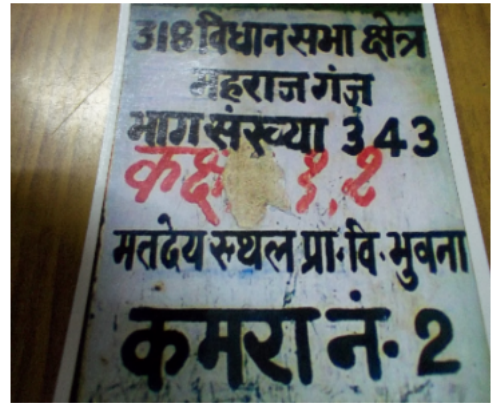 318 विधान सभा क्षेत्र
महराज गंज
भाग संख्या 343
कक्ष 1,2
मतदेय स्थल प्रा.वि.भुवना
कमरा नं. 2